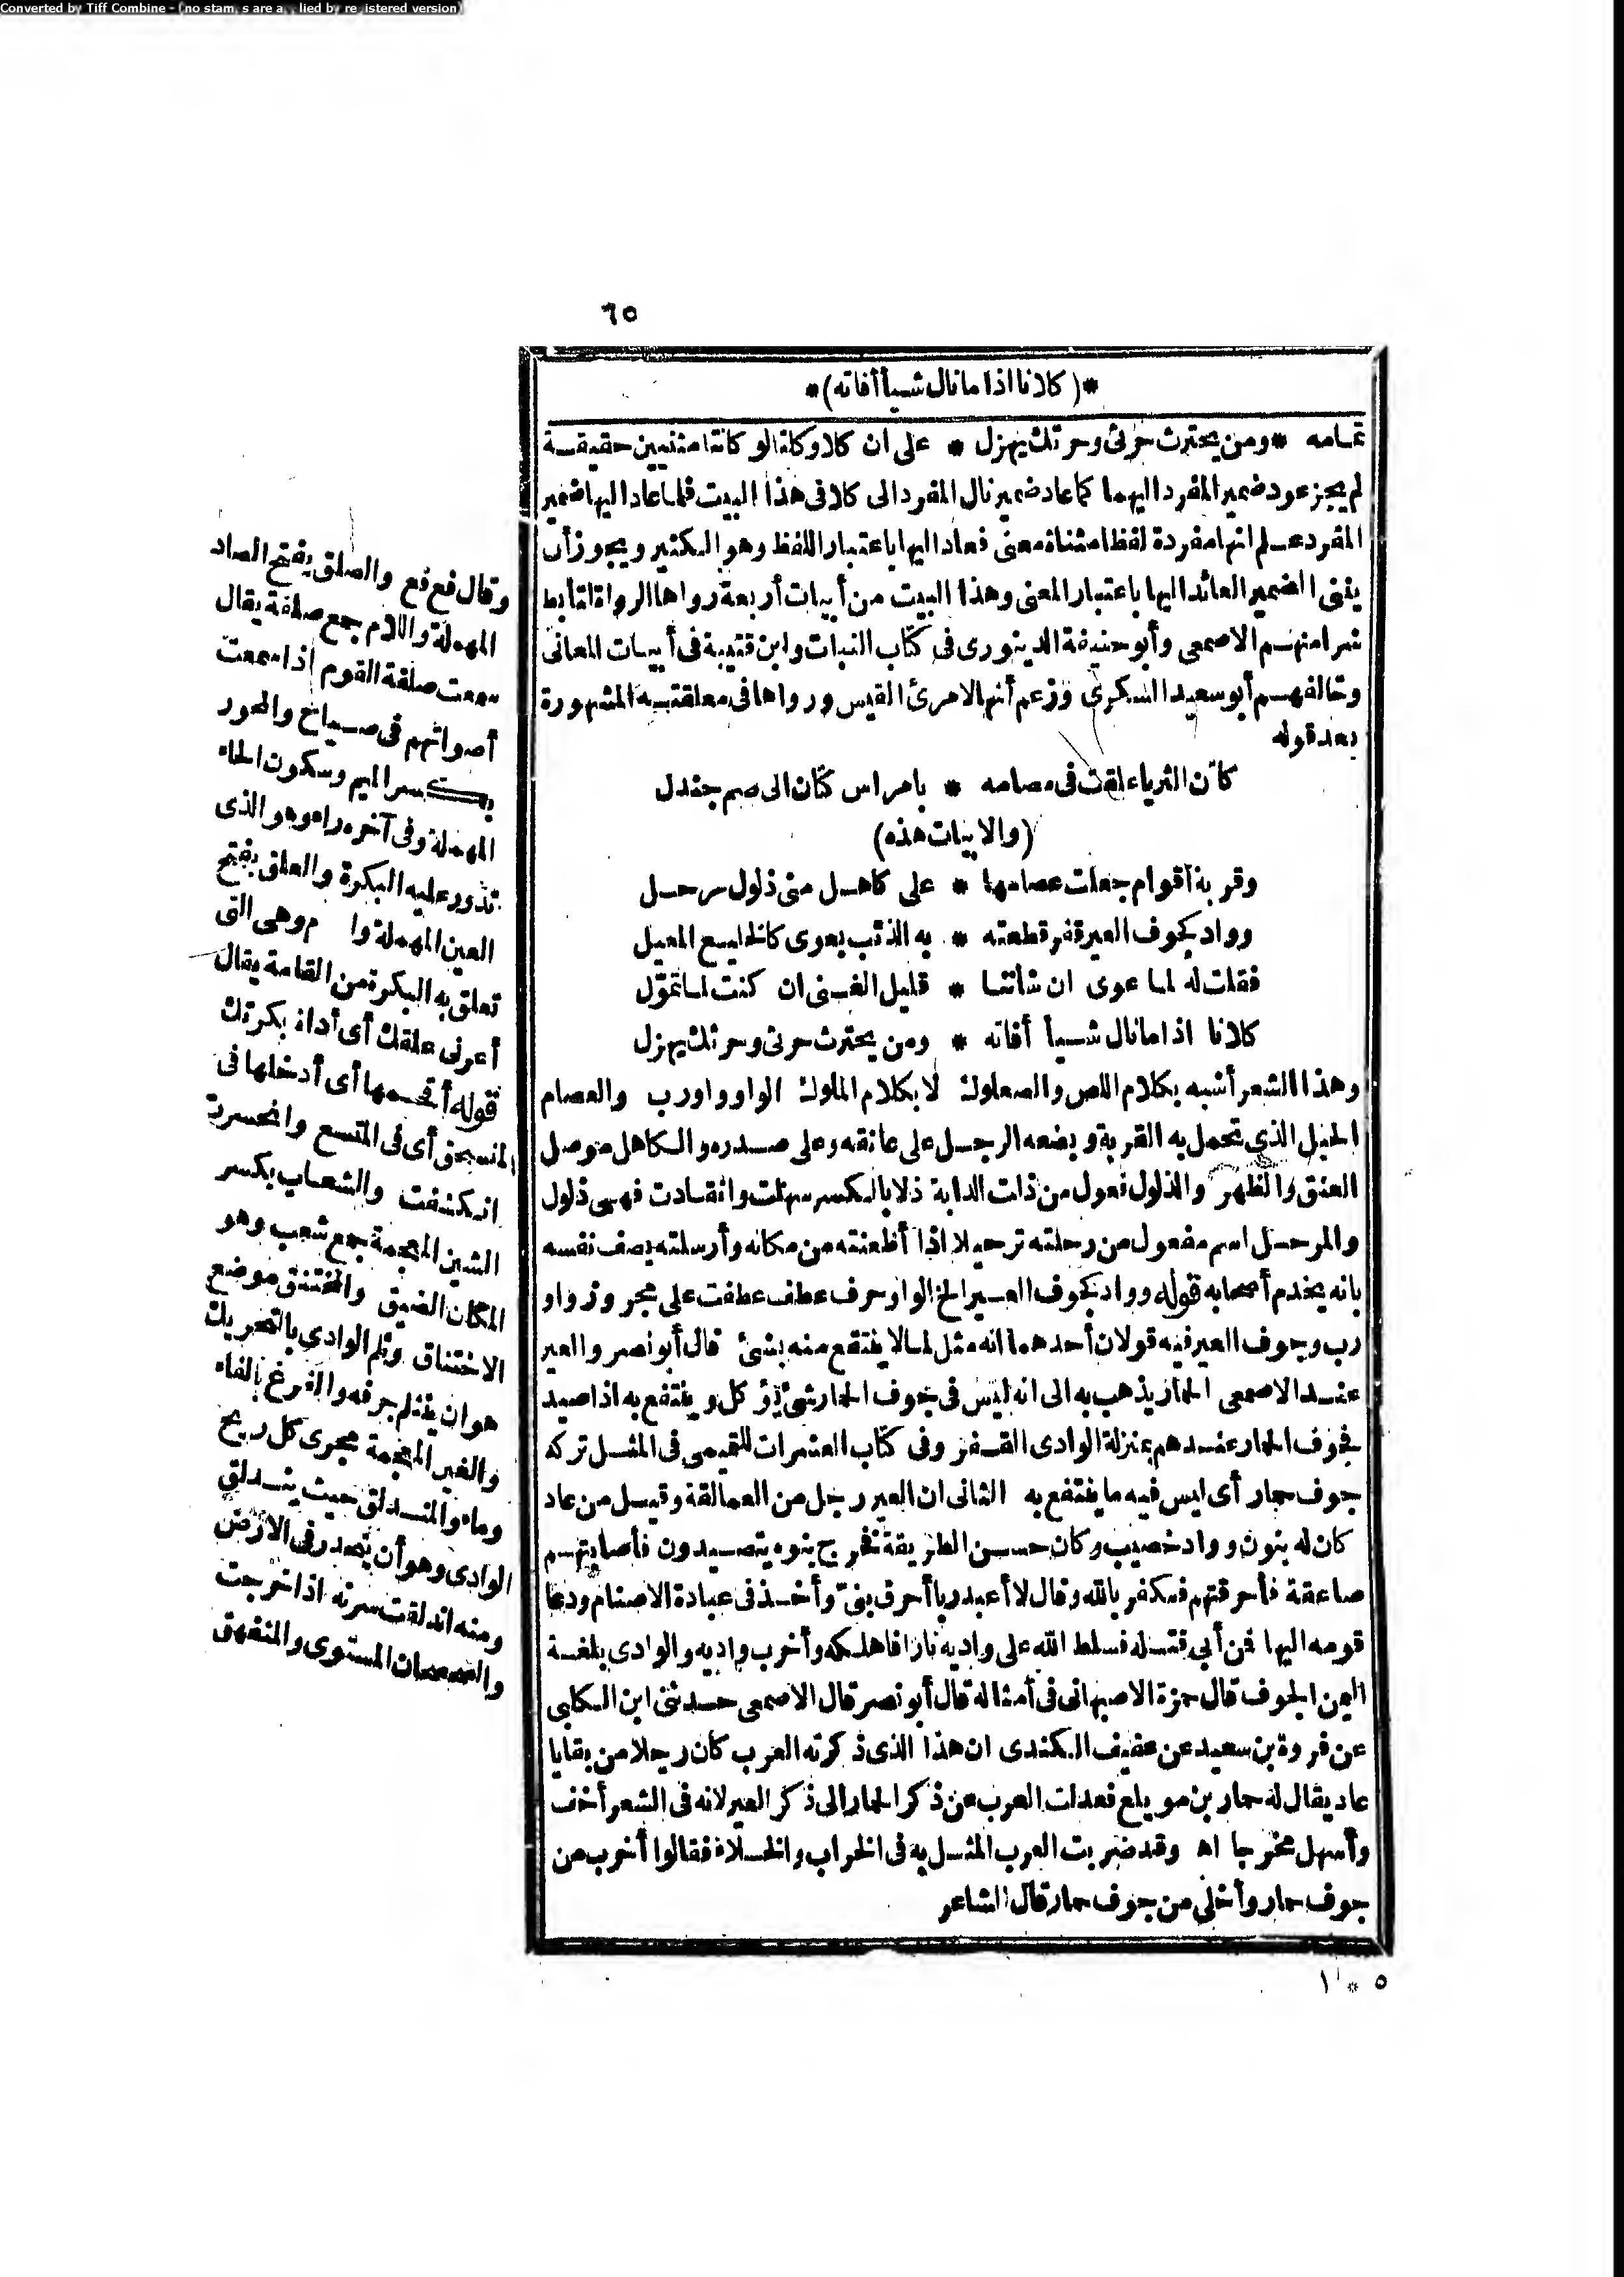 Converted by Tiff Combine - (no stamps are applied by registered version)
٦٥
*(كلانا اذا مانال شيأ أفاته)*
تمامه * ومن يحترث حرثى وحرثك يهزل * على ان كلا وكلتا لو كانتا مثنيين حقيقة
لم يجز عود ضمير المفرد اليهما كما عاد ضمير نال المفرد الى كلا فى هذا البيت فلما عاد اليها ضمير
المفرد علم انها مفردة لفظا مثناة معنى فعاد اليها باعتبار اللفظ وهو الكثير ويجوز أن
يثنى الضمير العائد اليها باعتبار المعنى وهذا البيت من أبيات أربعة رواها الرواة لتأبط
شرا منهم الاصمعى وأبو حنيفة الدينورى فى كتاب النبات وابن قتيبة فى أبيات المعانى
وخالفهم أبو سعيد السكرى وزعم أنها لامرئ القيس ورواها فى معلقته المشهورة
بعد قوله
كأن الثريا علقت فى مصامه * بامراس كتان الى صم جندل
(والابيات هذه)
وقربة أقوام جعلت عصامها * على كاهل منى ذلول مرحل
وواد كجوف العير قفر قطعته * به الذئب يعوى كالخليع المعيل
فقلت له لما عوى ان شأننا * قليل الغنى ان كنت لما تموّل
كلانا اذا مانال شيأ أفاته * ومن يحترث حرثى وحرثك يهزل
وهذا الشعر أشبه بكلام اللص والصعلوك لا بكلام الملوك الواو واورب والعصام
الحبل الذى تحمل به القربة ويضعه الرجل على عاتقه وعلى صدره والكاهل موصل
العنق والظهر والذلول فعول من ذلت الدابة ذلا بالكسر سهلت وانقادت فهى ذلول
والمرحل اسم مفعول من رحلته ترحيلا اذا أظعنته من مكانه وأرسلته يصف نفسه
بانه يخدم أصحابه قوله وواد كجوف العير الخ الواو حرف عطف عطفت على مجرور واو
رب وجوف العير فيه قولان أحدهما انه مثل لما لا ينتفع منه بشئ قال أبو نصر والعير
عند الاصمعى الحمار يذهب به الى انه ليس فى جوف الحمار شئ يؤكل وينتفع به اذا صيد
فجوف الحمار عندهم بمنزلة الوادى القفر وفى كتاب العشرات للتميمى فى المثل تركه
جوف حمار أى ليس فيه ما ينتفع به الثانى ان العير رجل من العمالقة وقيل من عاد
كان له بنون وواد خصيب وكان حسن الطريقة فخرج بنوه يتصيدون فأصابتهم
صاعقة فأحرقتهم فكفر بالله وقال لا أعبد ربا أحرق بنىّ وأخذ فى عبادة الاصنام ودعا
قومه اليها فمن أبى قتله فسلط الله على واديه نارا فاهلكه وأخرب واديه والوادى بلغة
اليمن الجوف قال حمزة الاصبهانى فى أمثاله قال أبو نصر قال الاصمعى حدثنى ابن الكلبى
عن فروة بن سعيد عن عفيف الكندى ان هذا الذى ذكرته العرب كان رجلا من بقايا
عاد يقال له حمار بن مويلع فعدلت العرب عن ذكر الحمار الى ذكر العير لانه فى الشعر أخف
وأسهل مخرجا اه وقد ضربت العرب المثل به فى الخراب والخلاء فقالوا أخرب من
جوف حمار وأخلى من جوف حمار قال الشاعر
٥ * ١
وقال فع فع والصلق بفتح الصاد
المهملة واللام جمع صلقة يقال
سمعت صلقة القوم اذا سمعت
أصواتهم فى صياح والمحور
بكسر الميم وسكون الحاء
المهملة وفى آخره راء وهو الذى
تدور عليه البكرة والعلق بفتح
العين المهملة وا م وهى التى
تعلق به البكرة من القامة يقال
أعرنى علقك أى أداة بكرتك
قوله أقحمها أى أدخلها فى
المنسحق أى فى المتسع وانحسرت
انكشفت والشعاب بكسر
الشين المعجمة جمع شعب وهو
المكان الضيق والمختنق موضع
الاختناق وثلم الوادى بالتحريك
هو ان ينثلم جرفه والفرغ بالفاء
والغين المعجمة مجرى كل ريح
وماء والمندلق حيث يندلق
الوادى وهو أن ينحدر فى الارض
ومنه اندلقت سرته اذا خرجت
والصحصحان المستوى والمنفهق